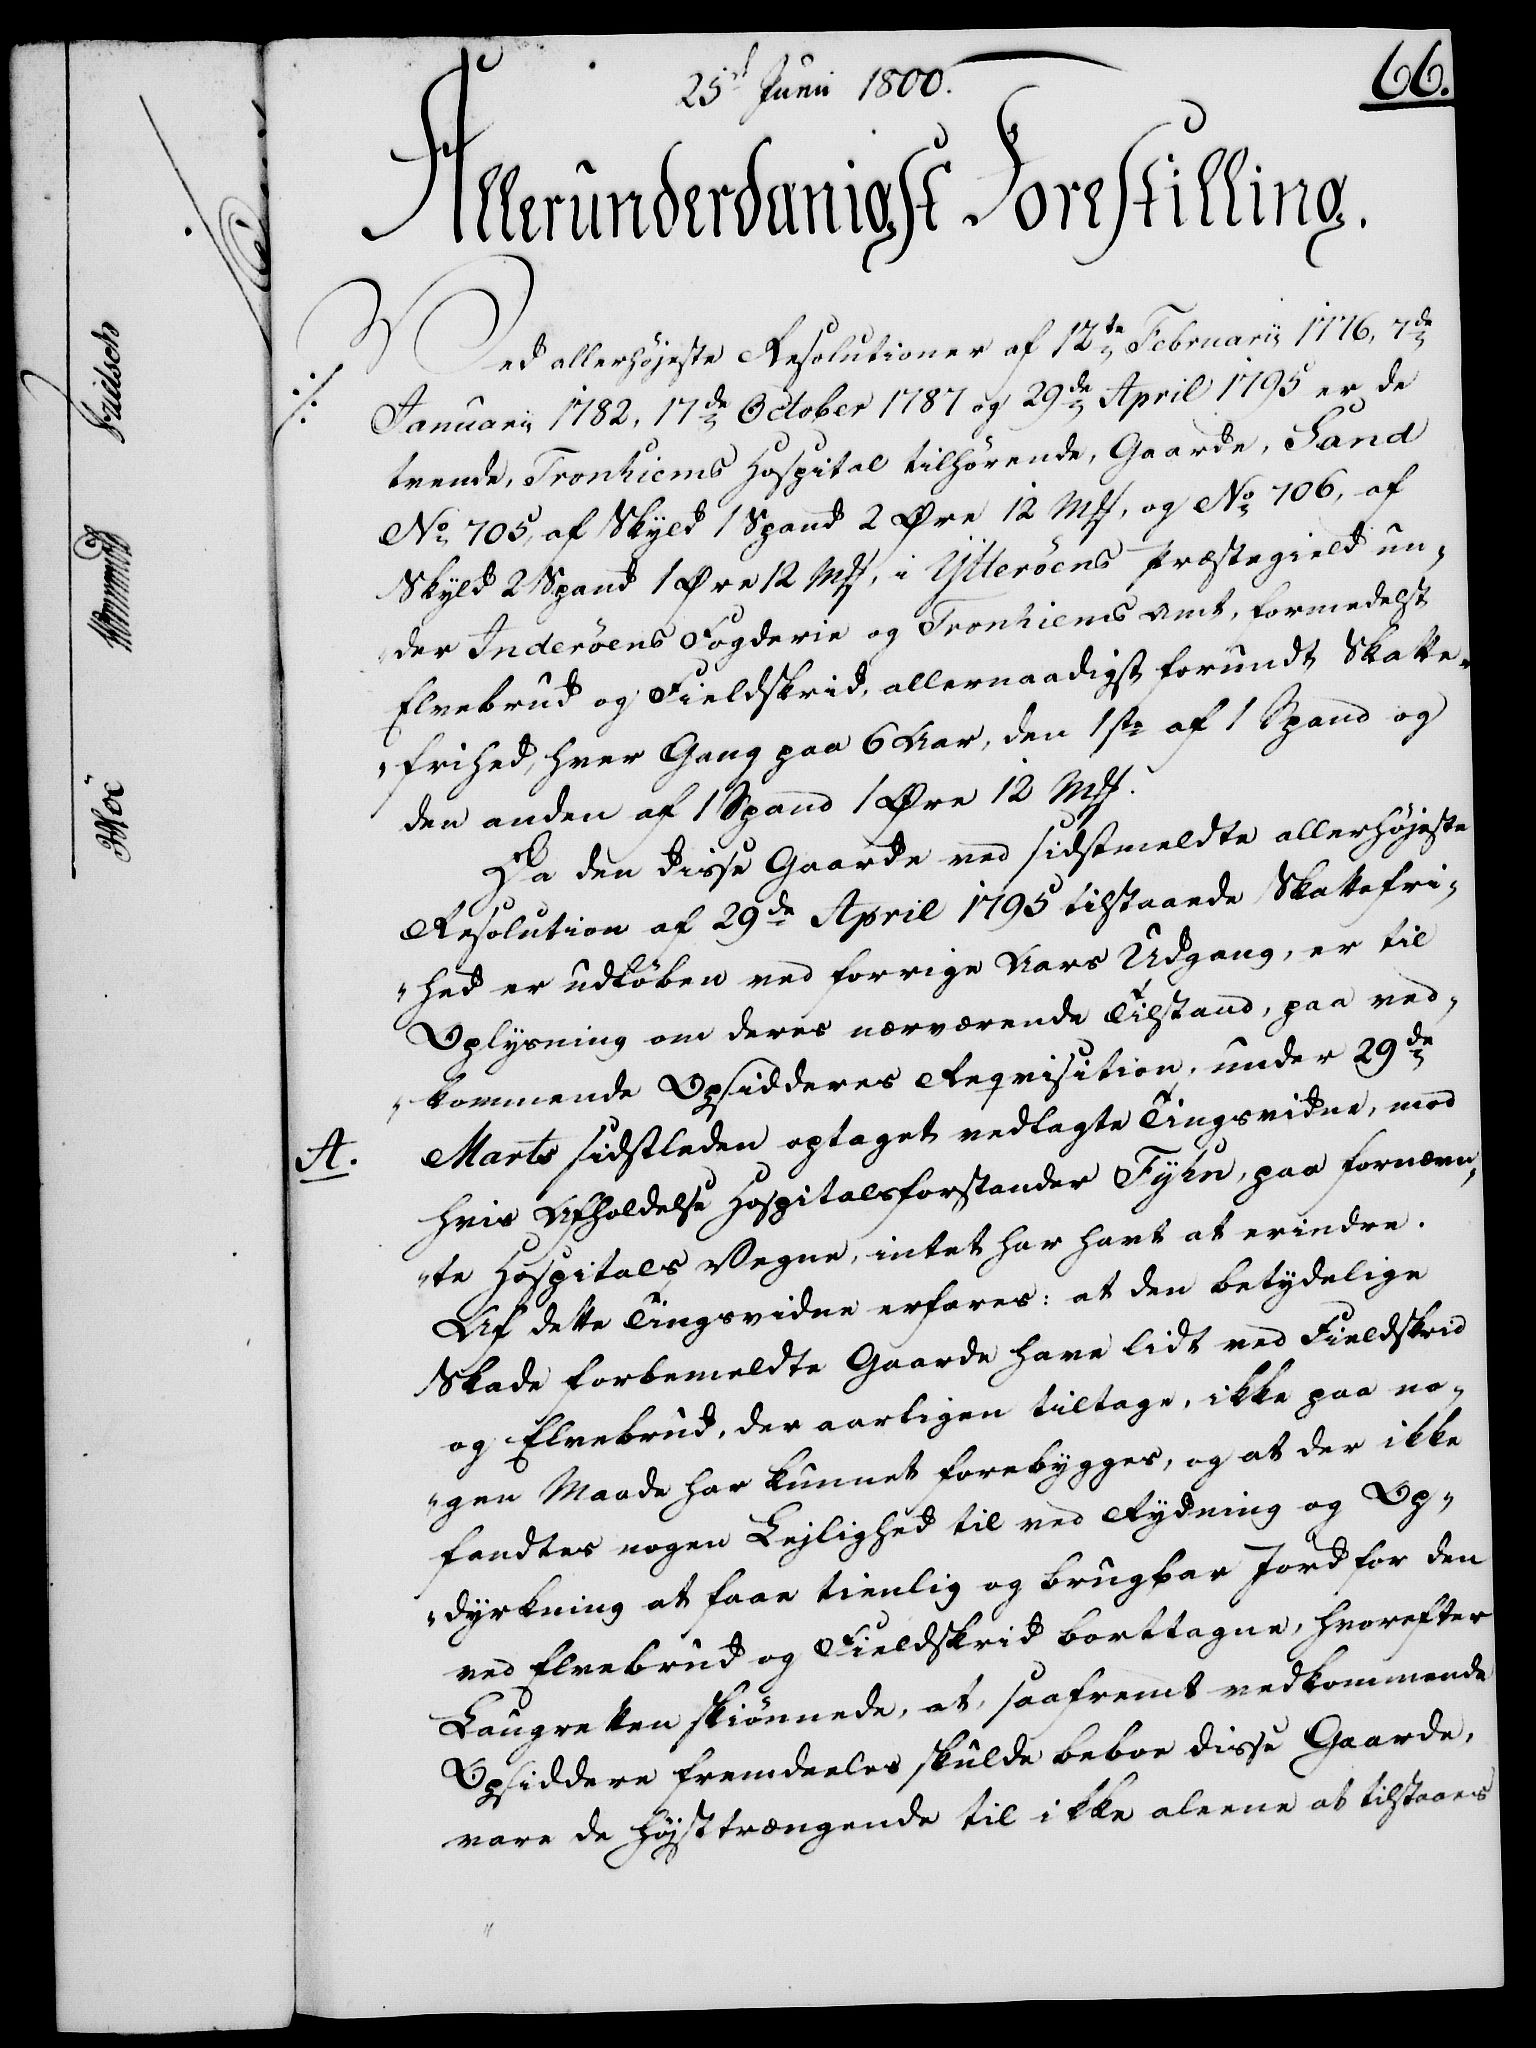 25de Junii 1800.
66.
Allerunderdanigst Forestilling.
Ved allerhøjeste Resolutioner af 12te Februarii 1776, 7de
Januarii 1782, 17de October 1787 og 29de April 1795 er de
tvende, Tronhiems Hospital tilhørende, Gaarde, Sand
No 705, af Skyld 1 Spand 2 Øre 12 Mkl, og No 706, af
Skyld 2 Spand 1 Øre 12 Mkl, i Ytterøens Præstegield un-
der Inderøens Fogderie og Tronhiems Amt, formedelst
Elvebrud og Fieldskrid, allernaadigst forundt Skatte-
frihed, hver Gang paa 6 Aar, den 1ste af 1 Spand og
den anden af 1 Spand 1 Øre 12 Mkl.
Da den disse Gaarde ved sidstmeldte allerhøjeste
Resolution af 29de April 1795 tilstaaede Skattefri-
"hed er udløben ved forrige Aars Udgang, er til
Oplysning om deres nærværende Tilstand, paa ved-
"kommende Opsidderes Reqvisition, under 29de
A. Marts sidstleden optaget vedlagte Tingsvidne, mod
hvis Afholdelse Hospitalsforstander Fyhn, paa fornævn-
"te Hospitals Vegne, intet har havt at erindre.
Af dette Tingsvidne erfares: at den betydelige
Skade forbemeldte Gaarde have lidt ved Fieldskrid
og Elvebrud, der aarligen tiltage, ikke paa no-
"gen Maade har kunnet forebygges, og at der ikke
fandtes nogen Lejlighed til ved Rydning og Op-
"dyrkning at faae tienlig og brugbar Jord for den
ved Elvebrud og Fieldskrid borttagne, hvorefter
Laugretten skiønnede, at, saafremt vedkommende
Opsiddere fremdeeles skulde beboe disse Gaarde,
vare de højsttrængende til ikke aleene at tilstaaes
Fritsch